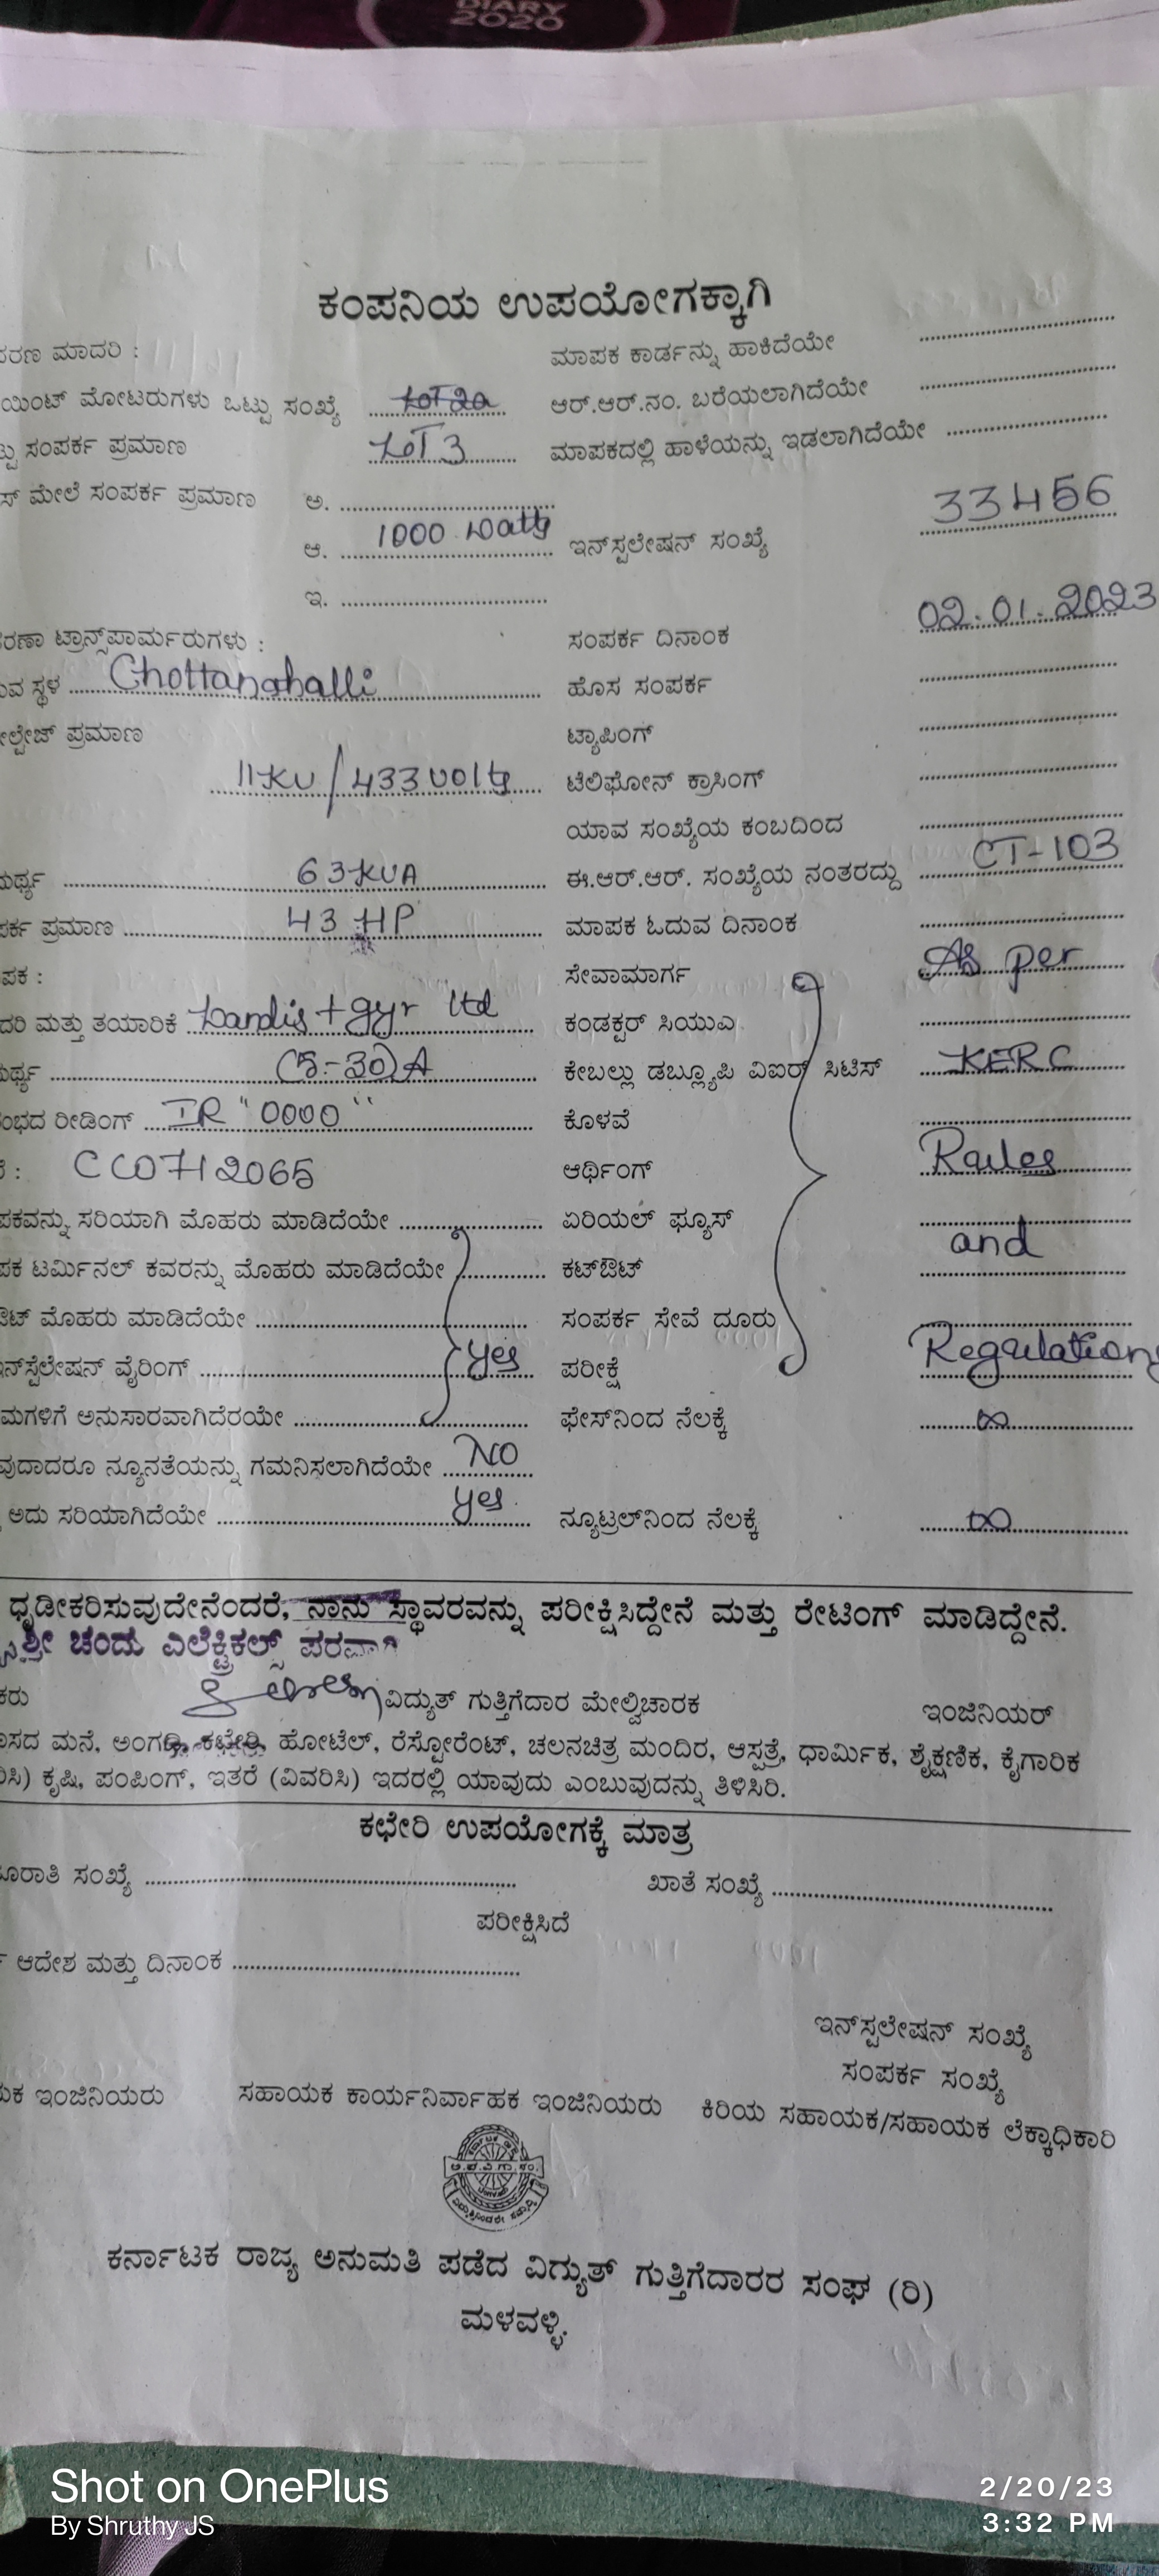 DIARY
2020
ಕಂಪನಿಯ ಉಪಯೋಗಕ್ಕಾಗಿ
ಮಾದರಿ : ಮಾಪಕ ಕಾರ್ಡನ್ನು ಹಾಕಿದೆಯೇ
ಯಿಂಟ್ ಮೋಟರುಗಳು ಒಟ್ಟು ಸಂಖ್ಯೆ ಆರ್.ಆರ್.ನಂ. ಬರೆಯಲಾಗಿದೆಯೇ
ಸಂಪರ್ಕ ಪ್ರಮಾಣ LOT 3 ಮಾಪಕದಲ್ಲಿ ಹಾಳೆಯನ್ನು ಇಡಲಾಗಿದೆಯೇ
ಮೇಲೆ ಸಂಪರ್ಕ ಪ್ರಮಾಣ ಅ.
ಆ. 1000 watts ಇನ್‌ಸ್ಟಲೇಷನ್ ಸಂಖ್ಯೆ 33456
ಇ.
ಟ್ರಾನ್ಸ್‌ಪಾರ್ಮರುಗಳು : ಸಂಪರ್ಕ ದಿನಾಂಕ 02.01.2023
ಸ್ಥಳ Chottanahalli ಹೊಸ ಸಂಪರ್ಕ
ಪ್ರಮಾಣ ಟ್ಯಾಪಿಂಗ್
11KV/433volts ಟೆಲಿಫೋನ್ ಕ್ರಾಸಿಂಗ್
ಯಾವ ಸಂಖ್ಯೆಯ ಕಂಬದಿಂದ
63KVA ಈ.ಆರ್.ಆರ್. ಸಂಖ್ಯೆಯ ನಂತರದ್ದು CT-103
ಪ್ರಮಾಣ 43 HP ಮಾಪಕ ಓದುವ ದಿನಾಂಕ
ಪಕ : ಸೇವಾಮಾರ್ಗ As per
ಮತ್ತು ತಯಾರಿಕೆ Landis+gyr ltd ಕಂಡಕ್ಟರ್ ಸಿಯುಎ
(5-30)A ಕೇಬಲ್ಲು ಡಬ್ಲ್ಯೂಪಿ ವಿಐರ್ ಸಿಟಿಸ್ KERC
ರೀಡಿಂಗ್ IR "0000" ಕೊಳವೆ
CC0712065 ಆರ್ಥಿಂಗ್ Rules
ಪಕವನ್ನು ಸರಿಯಾಗಿ ಮೊಹರು ಮಾಡಿದೆಯೇ ಏರಿಯಲ್ ಫ್ಯೂಸ್ and
ಪಕ ಟರ್ಮಿನಲ್ ಕವರನ್ನು ಮೊಹರು ಮಾಡಿದೆಯೇ ಕಟ್‌ಔಟ್
ಮೊಹರು ಮಾಡಿದೆಯೇ ಸಂಪರ್ಕ ಸೇವೆ ದೂರು
ವೈರಿಂಗ್ yes ಪರೀಕ್ಷೆ Regulations
ಮಗಳಿಗೆ ಅನುಸಾರವಾಗಿದೆರಯೇ ಫೇಸ್‌ನಿಂದ ನೆಲಕ್ಕೆ ∞
ವುದಾದರೂ ನ್ಯೂನತೆಯನ್ನು ಗಮನಿಸಲಾಗಿದೆಯೇ NO
ಅದು ಸರಿಯಾಗಿದೆಯೇ yes ನ್ಯೂಟ್ರಲ್‌ನಿಂದ ನೆಲಕ್ಕೆ ∞
ಧೃಡೀಕರಿಸುವುದೇನೆಂದರೆ, ನಾನು ಸ್ಥಾವರವನ್ನು ಪರೀಕ್ಷಿಸಿದ್ದೇನೆ ಮತ್ತು ರೇಟಿಂಗ್ ಮಾಡಿದ್ದೇನೆ.
ಶ್ರೀ ಚಂದು ಎಲೆಕ್ಟ್ರಿಕಲ್ಸ್ ಪರವಾಗಿ
ಕರು ವಿದ್ಯುತ್ ಗುತ್ತಿಗೆದಾರ ಮೇಲ್ವಿಚಾರಕ ಇಂಜಿನಿಯರ್
ಸದ ಮನೆ, ಅಂಗಡಿ, ಕಛೇರಿ, ಹೋಟೆಲ್, ರೆಸ್ಟೋರೆಂಟ್, ಚಲನಚಿತ್ರ ಮಂದಿರ, ಆಸ್ಪತ್ರೆ, ಧಾರ್ಮಿಕ, ಶೈಕ್ಷಣಿಕ, ಕೈಗಾರಿಕ
ಕೃಷಿ, ಪಂಪಿಂಗ್, ಇತರೆ (ವಿವರಿಸಿ) ಇದರಲ್ಲಿ ಯಾವುದು ಎಂಬುವುದನ್ನು ತಿಳಿಸಿರಿ.
ಕಛೇರಿ ಉಪಯೋಗಕ್ಕೆ ಮಾತ್ರ
ಸಂಖ್ಯೆ ಖಾತೆ ಸಂಖ್ಯೆ
ಪರೀಕ್ಷಿಸಿದೆ
ಆದೇಶ ಮತ್ತು ದಿನಾಂಕ
ಇನ್‌ಸ್ಟಲೇಷನ್ ಸಂಖ್ಯೆ
ಸಂಪರ್ಕ ಸಂಖ್ಯೆ
ಇಂಜಿನಿಯರು ಸಹಾಯಕ ಕಾರ್ಯನಿರ್ವಾಹಕ ಇಂಜಿನಿಯರು ಕಿರಿಯ ಸಹಾಯಕ/ಸಹಾಯಕ ಲೆಕ್ಕಾಧಿಕಾರಿ
ಕರ್ನಾಟಕ ರಾಜ್ಯ ಅನುಮತಿ ಪಡೆದ ವಿದ್ಯುತ್ ಗುತ್ತಿಗೆದಾರರ ಸಂಘ (ರಿ)
ಮಳವಳ್ಳಿ.
Shot on OnePlus
By Shruthy JS
2/20/23
3:32 PM